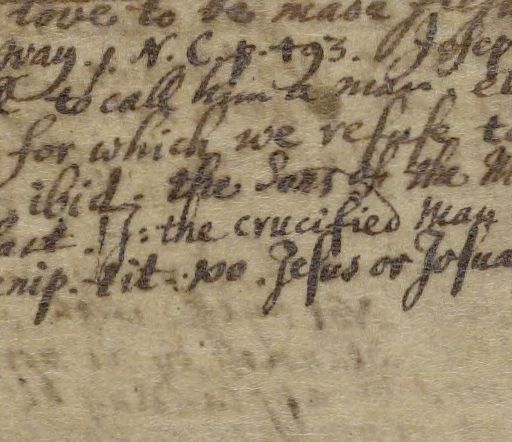 love to be made
way. J. N. C. p. 493. Josep
to call him a man, e
for which we refuse to
ibid. the Sons of the M
: the crucified man
nip. tit: 100. Jesus or Josua